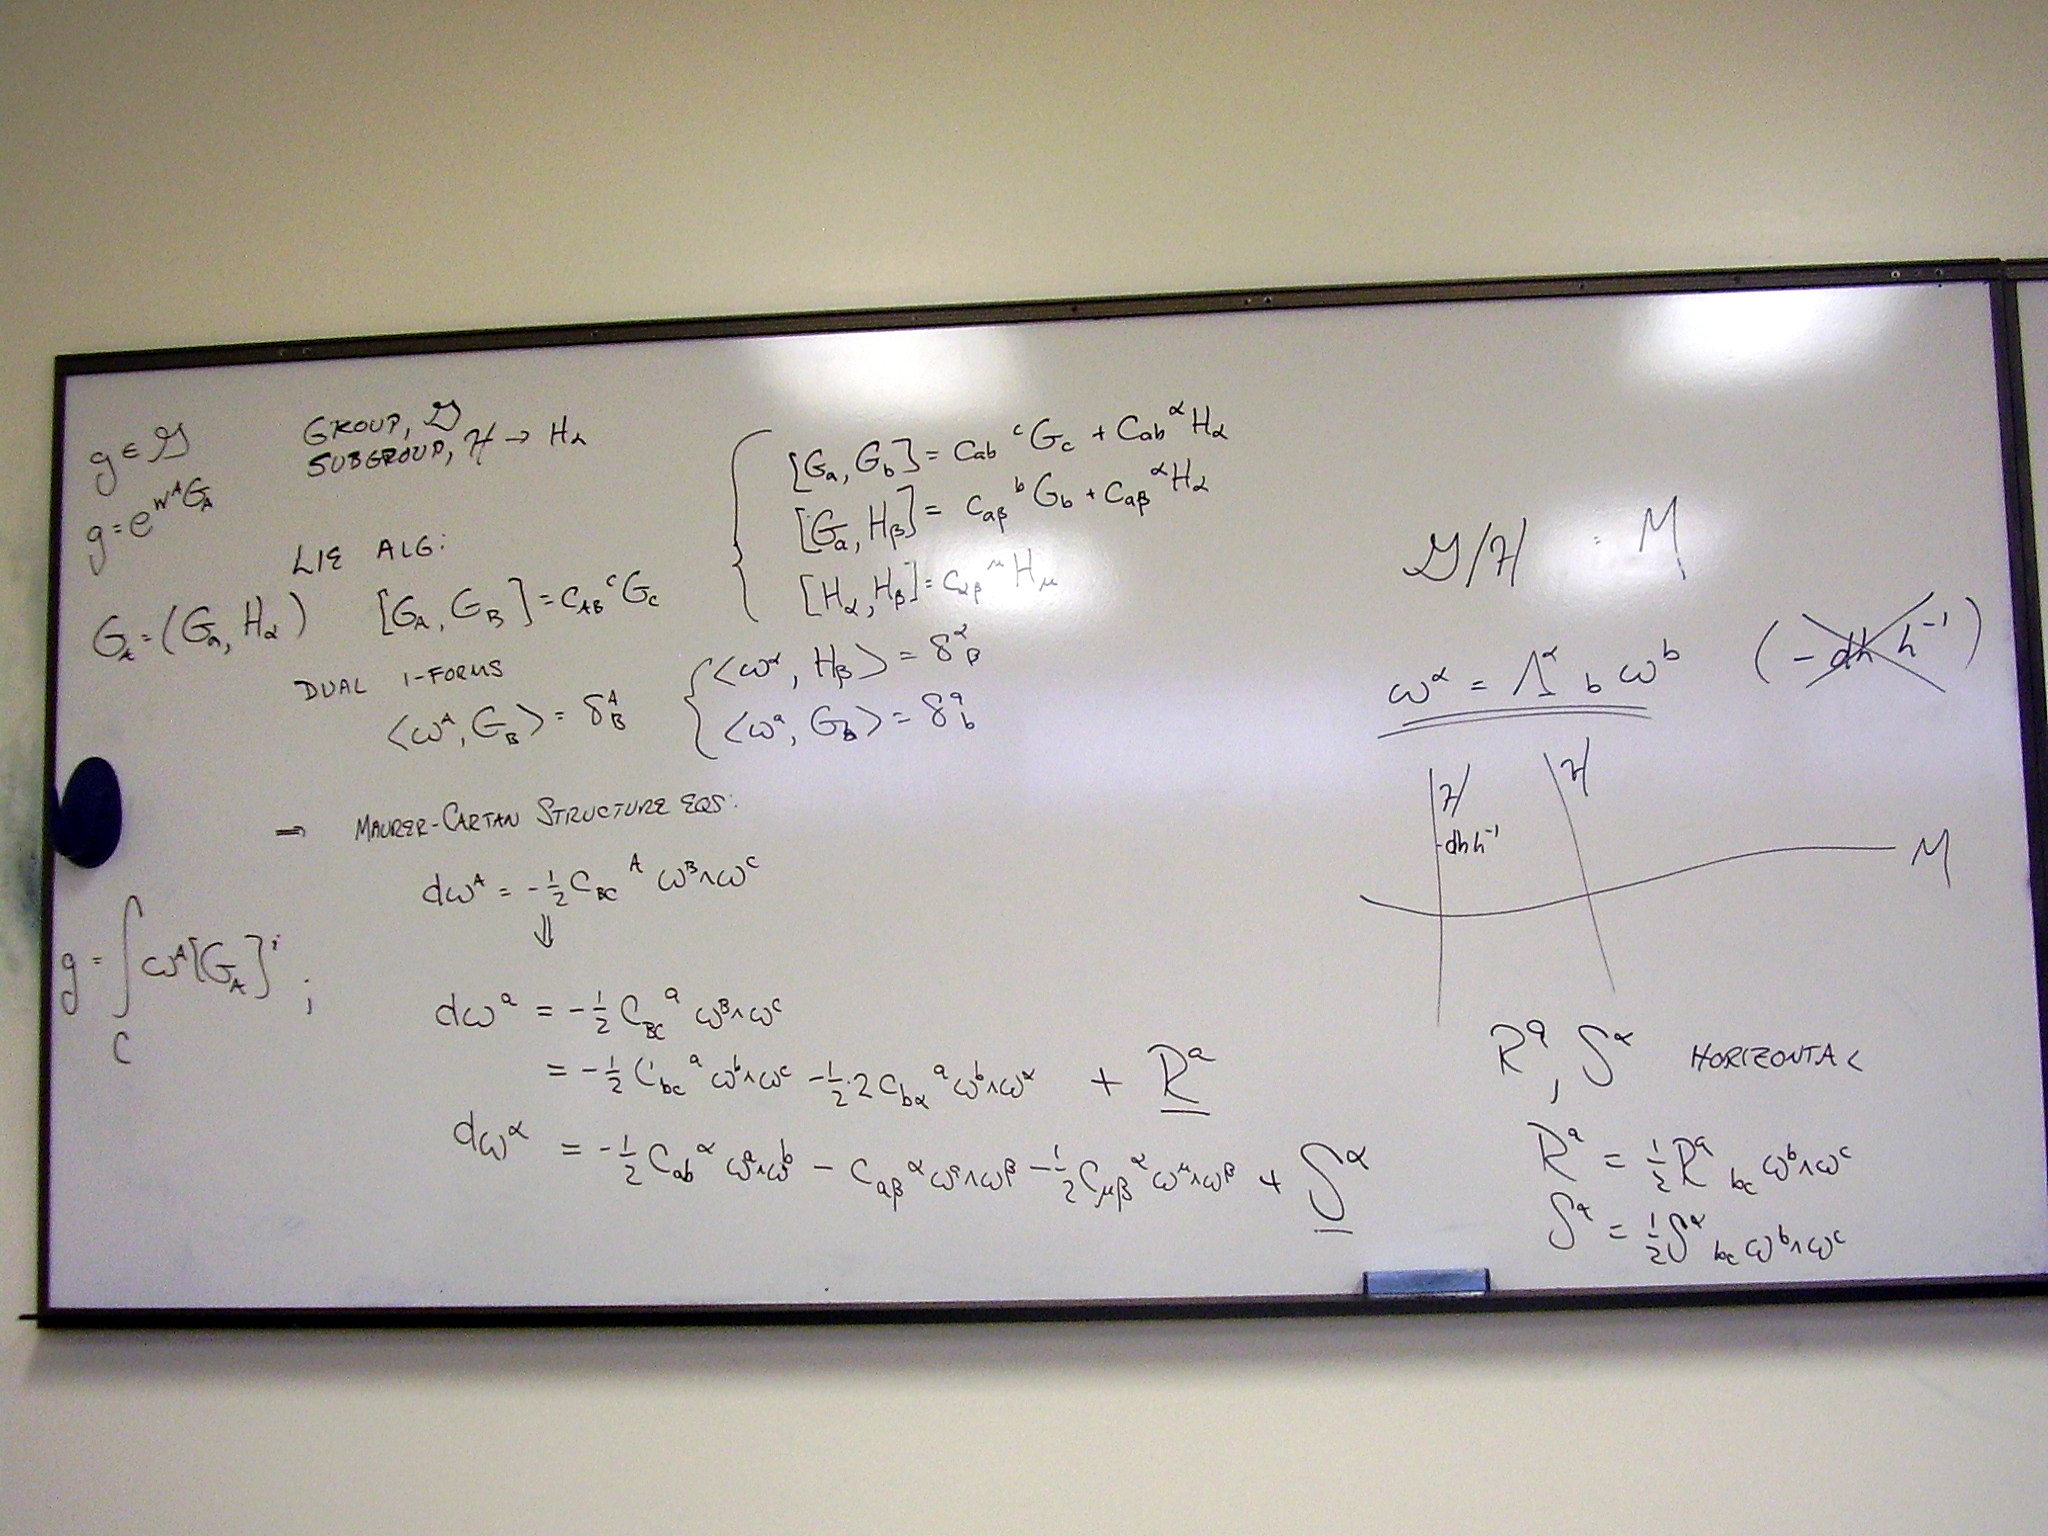 g ∈ 𝒢
g = e^{w^A G_A}
GROUP, 𝒢
SUBGROUP, ℋ → H_α
LIE ALG:
G_A = (G_a, H_α)
[G_A, G_B] = c_{AB}^C G_C
[G_a, G_b] = c_{ab}^c G_c + c_{ab}^α H_α
[G_a, H_β] = c_{aβ}^b G_b + c_{aβ}^α H_α
[H_α, H_β] = c_{αβ}^μ H_μ
DUAL 1-FORMS
<ω^A, G_B> = δ^A_B
<ω^α, H_β> = δ^α_β
<ω^a, G_b> = δ^a_b
⇒ MAURER-CARTAN STRUCTURE EQS:
dω^A = -½ C_{BC}^A ω^B∧ω^C
⇓
g = ∫_C ω^A [G_A]^i ;
dω^a = -½ C_{BC}^a ω^B∧ω^C
= -½ C_{bc}^a ω^b∧ω^c - ½·2 C_{bα}^a ω^b∧ω^α + R^a
dω^α = -½ C_{ab}^α ω^a∧ω^b - C_{aβ}^α ω^a∧ω^β - ½ C_{μβ}^α ω^μ∧ω^β + S^α
𝒢/ℋ = M
ω^α = Λ^α_b ω^b (-dh h^{-1})
ℋ ℋ
-dh h^{-1}
M
R^a, S^α HORIZONTAL
R^a = ½ R^a_{bc} ω^b∧ω^c
S^α = ½ S^α_{bc} ω^b∧ω^c